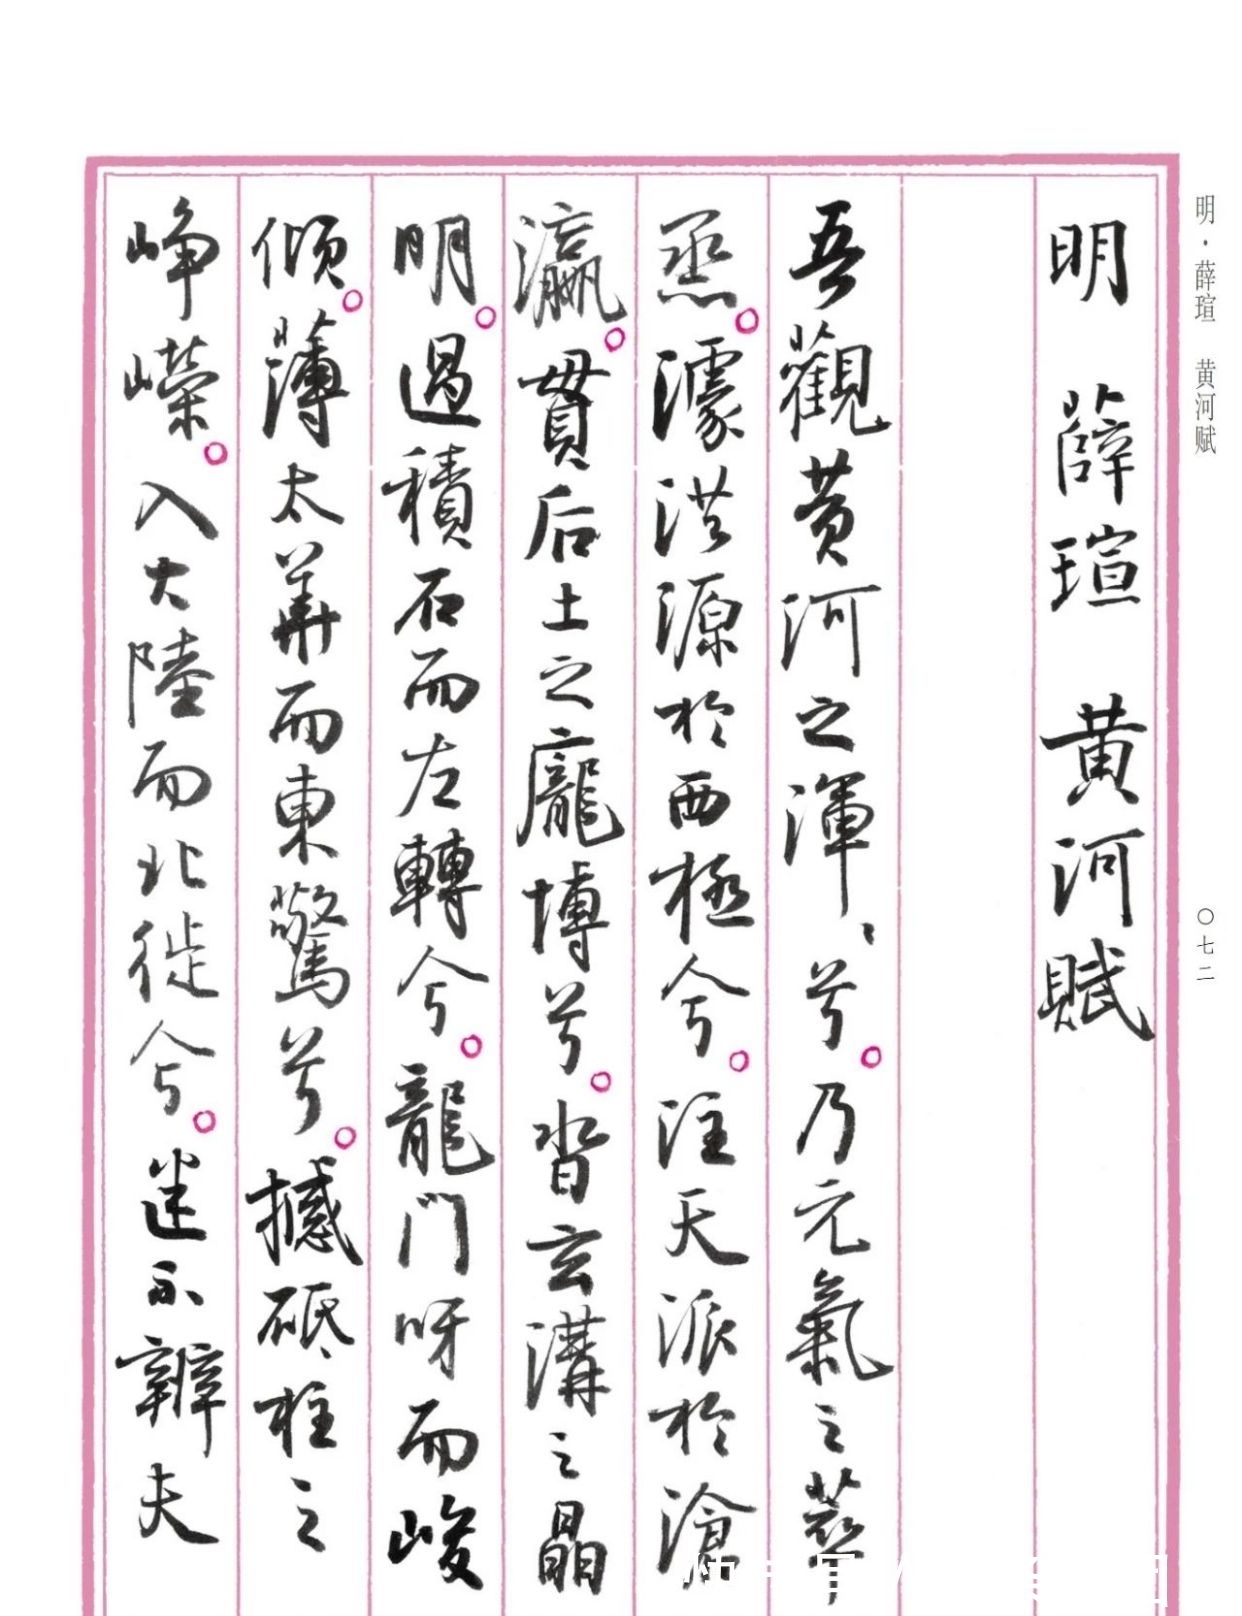 明·薛瑄 黄河赋
〇七二
明 薛瑄 黄河賦
吾觀黄河之渾〻兮。乃元氣之萃
烝。洪源於西極兮。注天派於滄
瀛。貫后土之龐博兮。沓玄溝之晶
明。過積石而左轉兮。龍門呀而峻
傾。薄太華而東驚兮。撼砥柱之
崢嶸。入大陸而北徙兮。迷不辨夫